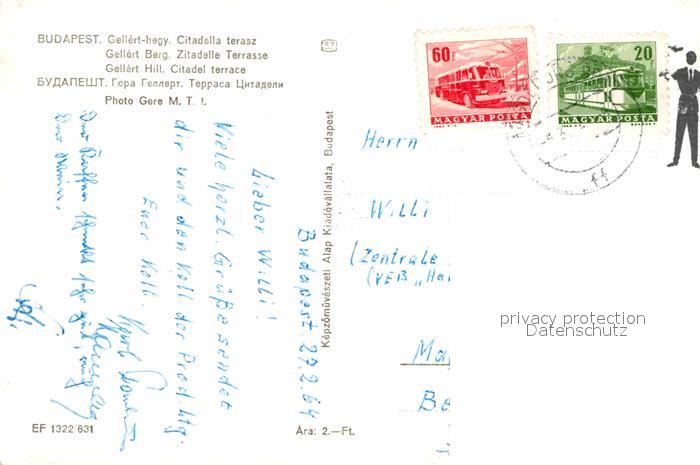 BUDAPEST. Gellért-hegy. Citadella terasz
Gellért Berg. Zitadelle Terrasse
Gellért Hill. Citadel terrace
БУДАПЕШТ. Гора Геллерт. Терраса Цитадели
Photo Gere M. T. I.
Budapest 27.2.64
Lieber Willi!
Viele herzl. Grüße sendet
dir und den Koll. der Prod. Ltg.
Euer Koll.
EF 1322/631
Ára: 2.—Ft.
Képzőművészeti Alap Kiadóvállalata, Budapest
60f
MAGYAR POSTA
20
MAGYAR POSTA
Herrn
Willi
(Zentrale
(VEB "Ha
Ma
Be
privacy protection
Datenschutz